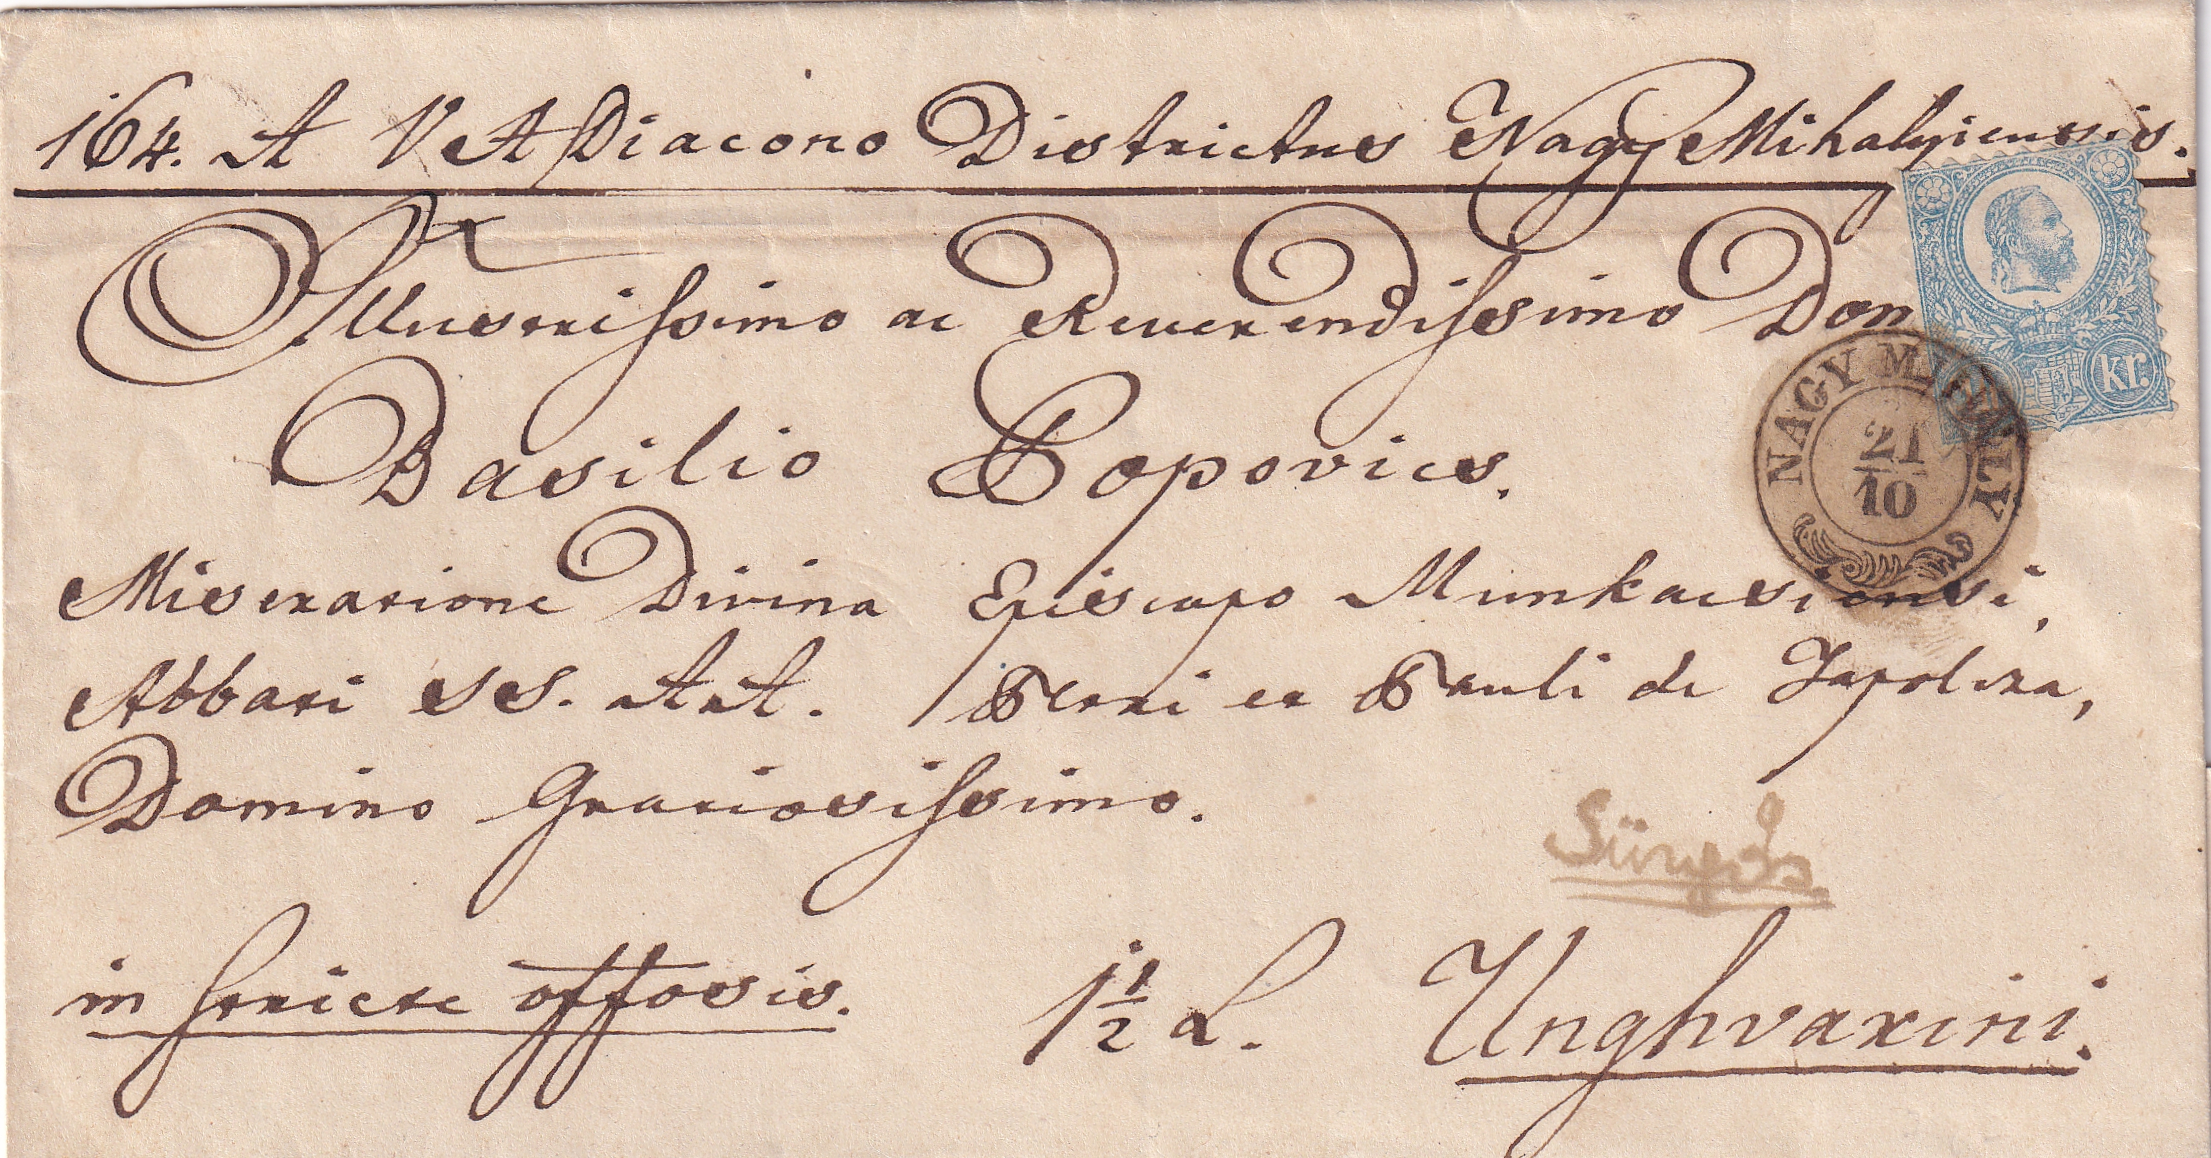 164. A V A Diacono Districtus Nagy Mihalyiensis.
Illustrissimo ac Reverendissimo Don
kr.
NAGY MIHÁLY
21
10
Basilio Popovics.
Miseratione Divina Episcopo Munkacsiensi,
Abbati SS. AA. Petri et Pauli de Tapolcza,
Domino Gratiosissimo.
Sürgős
in stricte offosis. 1 1/2 L. Unghvarini.